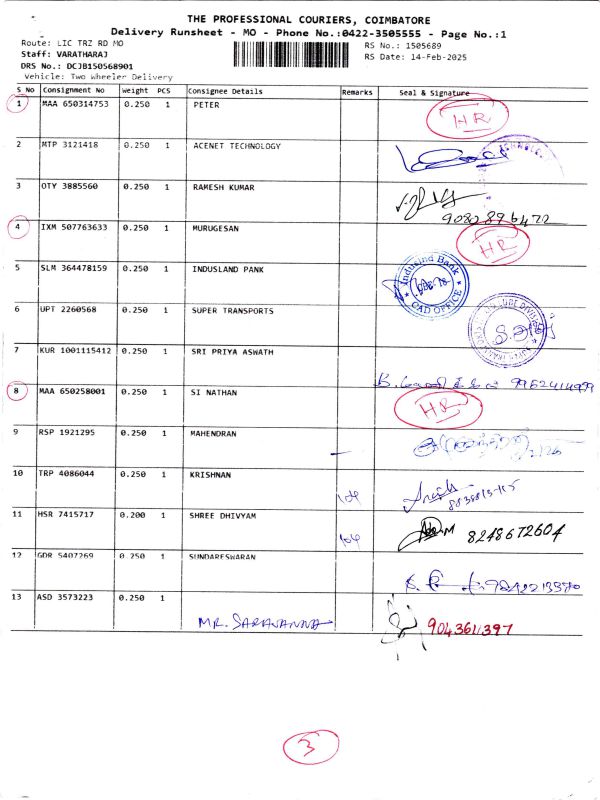 THE PROFESSIONAL COURIERS, COIMBATORE
Delivery Runsheet - MO - Phone No.:0422-3505555 - Page No.:1
Route: LIC TRZ RD MO
RS No.: 1505689
Staff: VARATHARAJ
RS Date: 14-Feb-2025
DRS No.: DCJB150568901
Vehicle: Two Wheeler Delivery
S No Consignment No Weight PCS Consignee Details Remarks Seal & Signature
1 MAA 650314753 0.250 1 PETER HR
2 MTP 3121418 0.250 1 ACENET TECHNOLOGY
3 OTY 3885560 0.250 1 RAMESH KUMAR
4 IXM 507763633 0.250 1 MURUGESAN HR
5 SLM 364478159 0.250 1 INDUSLAND PANK IndusInd Bank CAD OFFICE
6 UPT 2260568 0.250 1 SUPER TRANSPORTS
7 KUR 1001115412 0.250 1 SRI PRIYA ASWATH
8 MAA 650258001 0.250 1 SI NATHAN HR
9 RSP 1921295 0.250 1 MAHENDRAN
10 TRP 4086044 0.250 1 KRISHNAN
11 HSR 7415717 0.200 1 SHREE DHIVYAM 8248672604
12 GDR 5407269 0.250 1 SUNDARESWARAN
13 ASD 3573223 0.250 1 MR. SARAVANNA 904361397
3